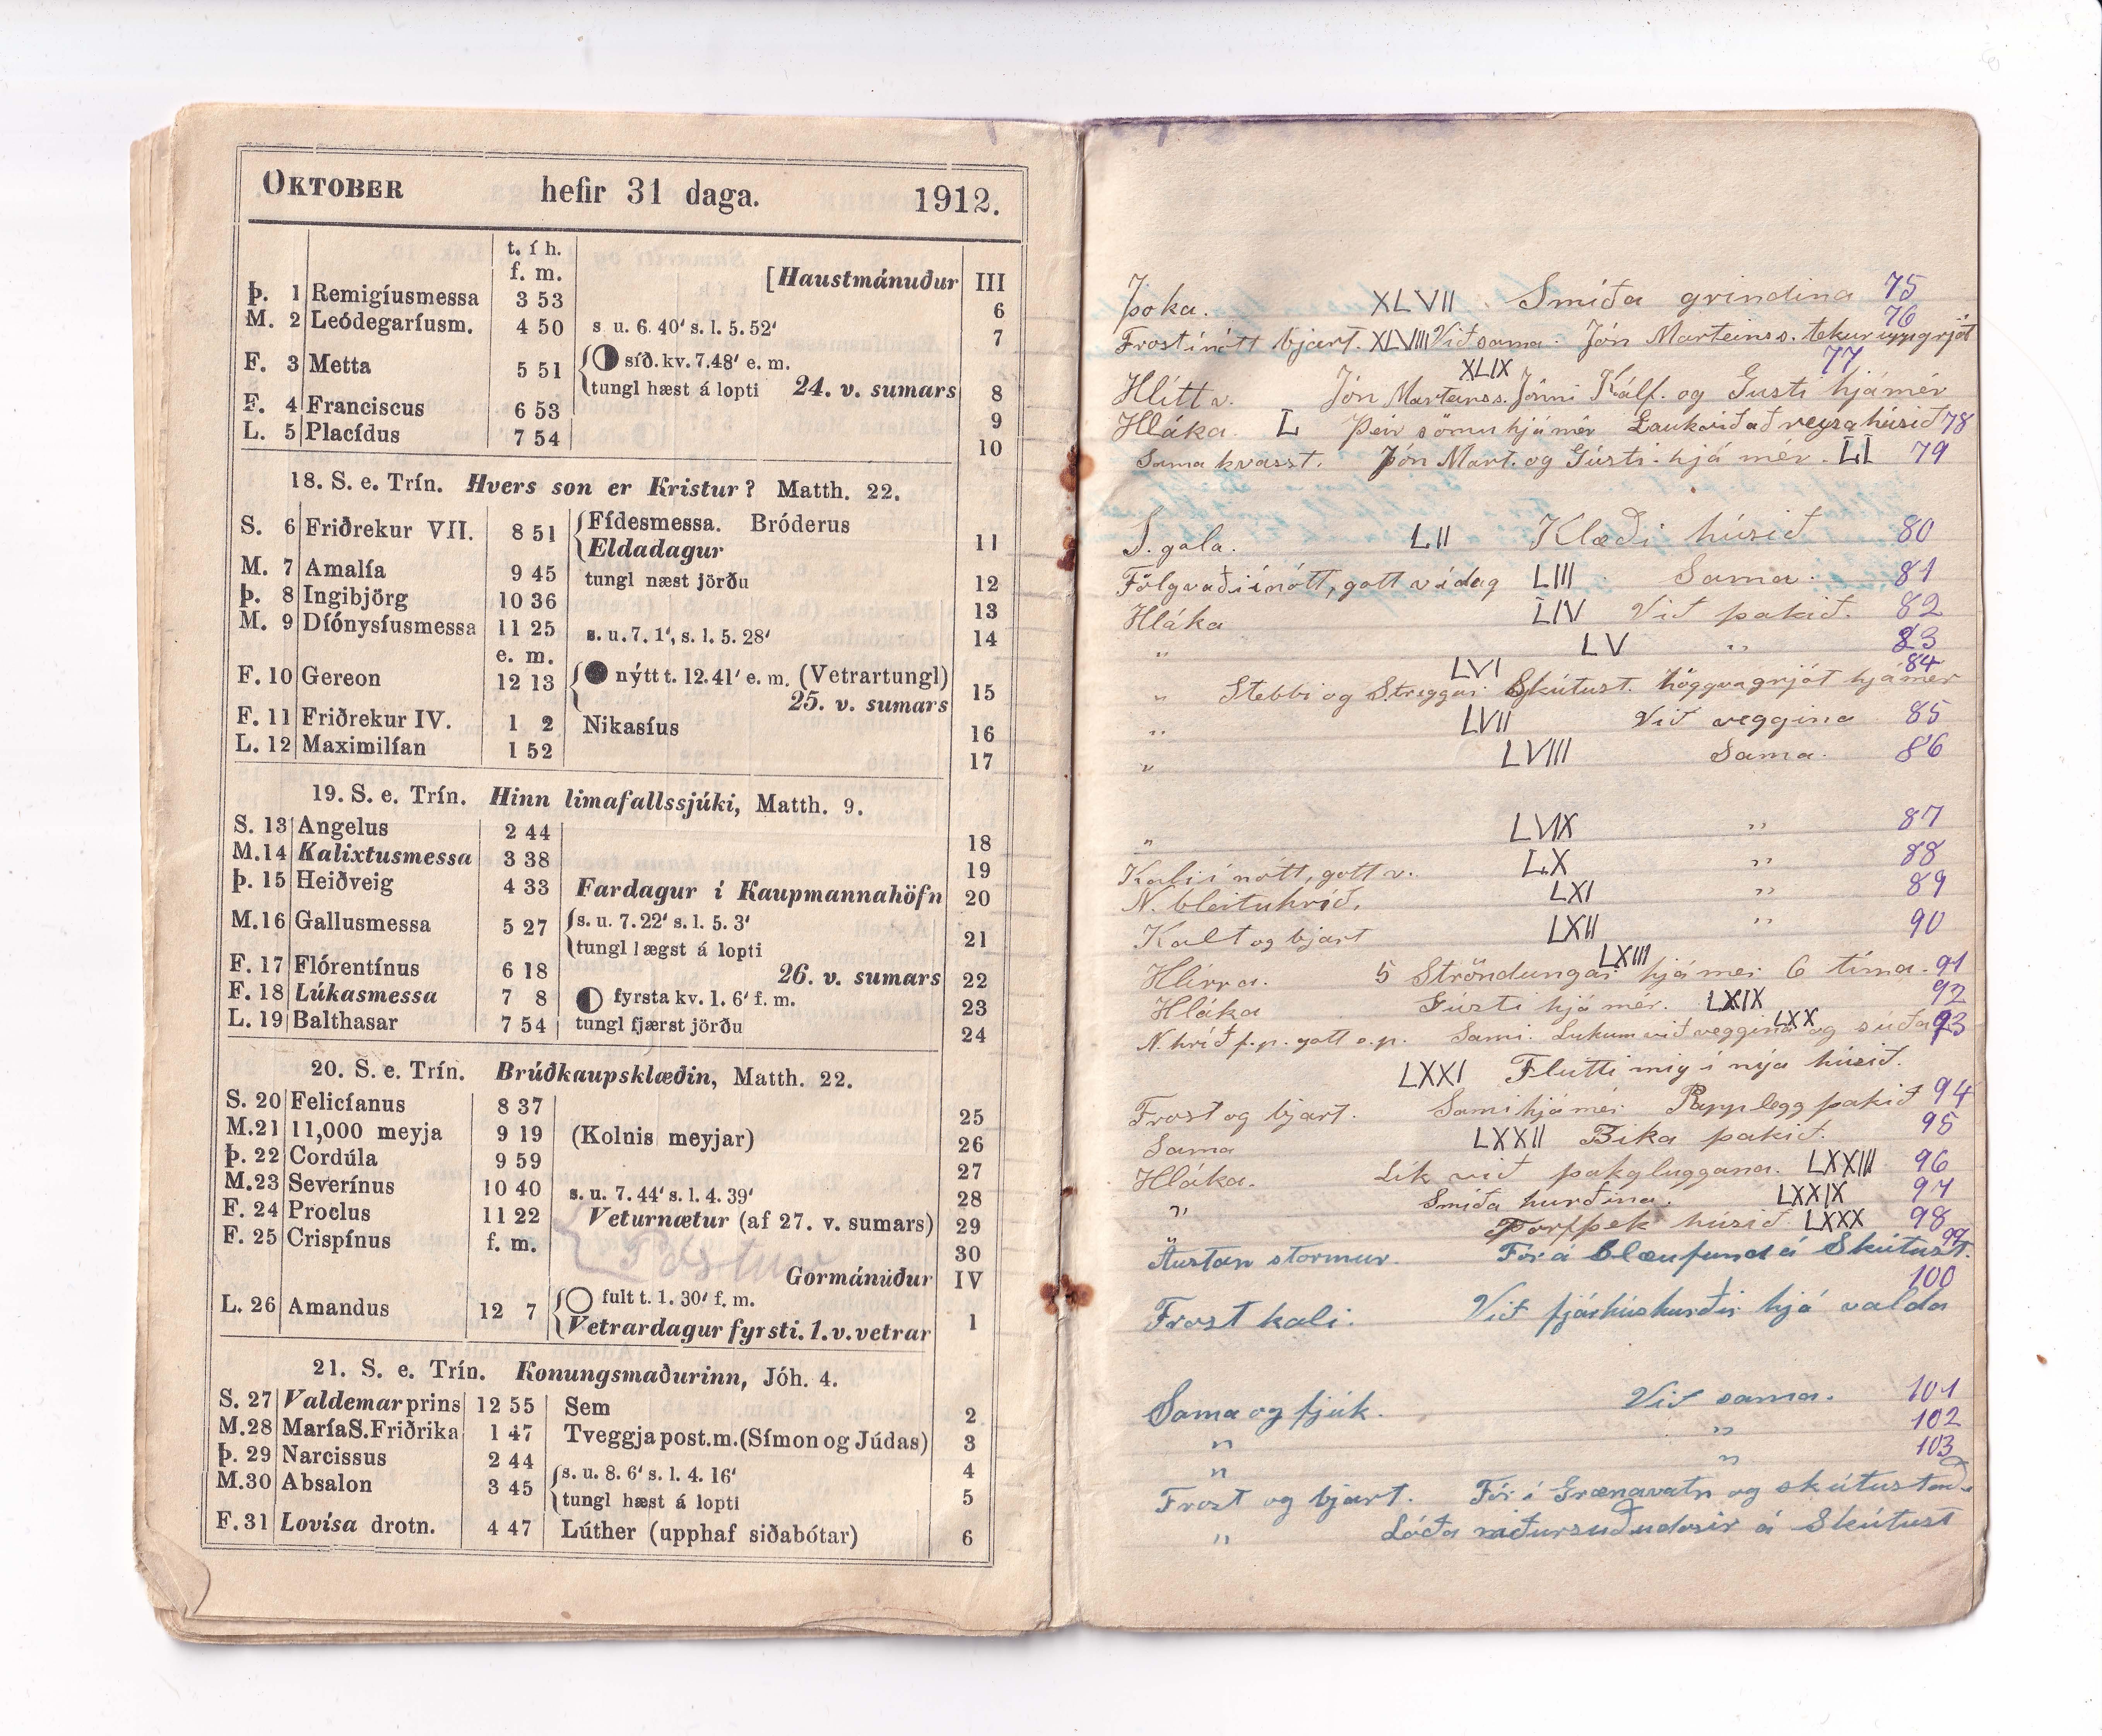 OKTOBER hefir 31 daga. 1912.
t. í h.
f. m. [Haustmánuður III
Þ. 1 Remigíusmessa 3 53 6
M. 2 Leódegaríusm. 4 50 s. u. 6. 40' s. l. 5. 52' 7
F. 3 Metta 5 51 síð. kv. 7. 48' e. m.
tungl hæst á lopti 24. v. sumars 8
F. 4 Franciscus 6 53 9
L. 5 Placídus 7 54 10
18. S. e. Trín. Hvers son er Kristur? Matth. 22.
S. 6 Friðrekur VII. 8 51 Fídesmessa. Bróderus
Eldadagur 11
M. 7 Amalía 9 45 tungl næst jörðu 12
Þ. 8 Ingibjörg 10 36 13
M. 9 Díónysíusmessa 11 25 s. u. 7. 1', s. l. 5. 28' 14
e. m.
F. 10 Gereon 12 13 nýtt t. 12. 41' e. m. (Vetrartungl)
25. v. sumars 15
F. 11 Friðrekur IV. 1 2 Nikasíus 16
L. 12 Maximilían 1 52 17
19. S. e. Trín. Hinn limafallssjúki, Matth. 9.
S. 13 Angelus 2 44 18
M. 14 Kalixtusmessa 3 38 19
Þ. 15 Heiðveig 4 33 Fardagur í Kaupmannahöfn 20
M. 16 Gallusmessa 5 27 s. u. 7. 22' s. l. 5. 3'
tungl lægst á lopti 21
F. 17 Flórentínus 6 18 26. v. sumars 22
F. 18 Lúkasmessa 7 8 fyrsta kv. 1. 6' f. m. 23
L. 19 Balthasar 7 54 tungl fjærst jörðu 24
20. S. e. Trín. Brúðkaupsklæðin, Matth. 22.
S. 20 Felicíanus 8 37 25
M. 21 11,000 meyja 9 19 (Kolnis meyjar) 26
Þ. 22 Cordúla 9 59 27
M. 23 Severínus 10 40 s. u. 7. 44' s. l. 4. 39' 28
F. 24 Proclus 11 22 Veturnætur (af 27. v. sumars) 29
F. 25 Crispínus f. m. 30
Póstur
Gormánuður IV
L. 26 Amandus 12 7 fult t. 1. 30' f. m.
Vetrardagur fyrsti. 1. v. vetrar 1
21. S. e. Trín. Konungsmaðurinn, Jóh. 4.
S. 27 Valdemar prins 12 55 Sem 2
M. 28 María S. Friðrika 1 47 Tveggja post.m. (Símon og Júdas) 3
Þ. 29 Narcissus 2 44 4
M. 30 Absalon 3 45 s. u. 8. 6' s. l. 4. 16'
tungl hæst á lopti 5
F. 31 Lovísa drotn. 4 47 Lúther (upphaf siðabótar) 6
Þoka. XLVII Smíða grindina 75
Frost í nótt bjart. XLVIII Við sama. Jón Marteinss. tekur upp grjót 76
Hlítt v. XLIX Jón Marteinss. Jónni Kálf. og Gusti hjá mér 77
Hláka. L Þeir sömu hjá mér Lauk við að reysa húsið 78
Sama hvasst. Jón Mart. og Gústi hjá mér. LI 79
S. gola. LII Klæði húsið 80
Fölgvaði í nótt, gott v í dag LIII Sama. 81
Hláka LIV Við þakið. 82
" LV " 83
" LVI Stebbi og Skútust. höggva grjót hjá mér 84
" LVII Við veggina 85
" LVIII Sama. 86
" LVIX " 87
Kali í nótt, gott v. LX " 88
N. bleituhríð. LXI " 89
Kalt og bjart LXII " 90
Hlírra. LXIII 5 Ströndungar hjá mér 6 tíma. 91
Hláka Gústi hjá mér. LXIX 92
N. hríð f.p. gott e.p. Sami. Lukum við veggina og súða LXX 93
LXXI Flutti mig í nýa húsið.
Frost og bjart. Sami hjá mér Papplegg þakið 94
Sama LXXII Bika þakið. 95
Hláka. Lík við þakgluggana. LXXIII 96
" Smíða hurðina. LXXIX 97
" Torfþek húsið LXXX 98
Austan stormur. Fór á fund á Skútust. 99
Frost kali. Við fjárhúshurðir hjá valda 100
Sama og fjúk. Við sama. 101
" " 102
" " 103
Frost og bjart. Fór í Grænavatn og skútustað.
" Lóða niðursuðudósir á Skútust